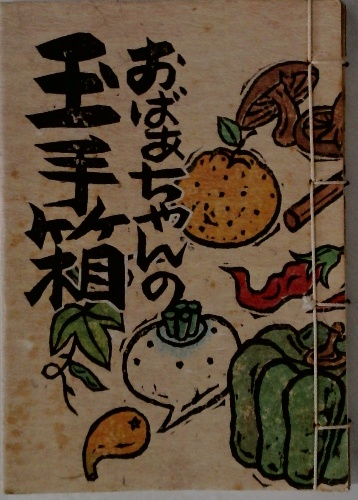 おばあちゃんの
玉手箱